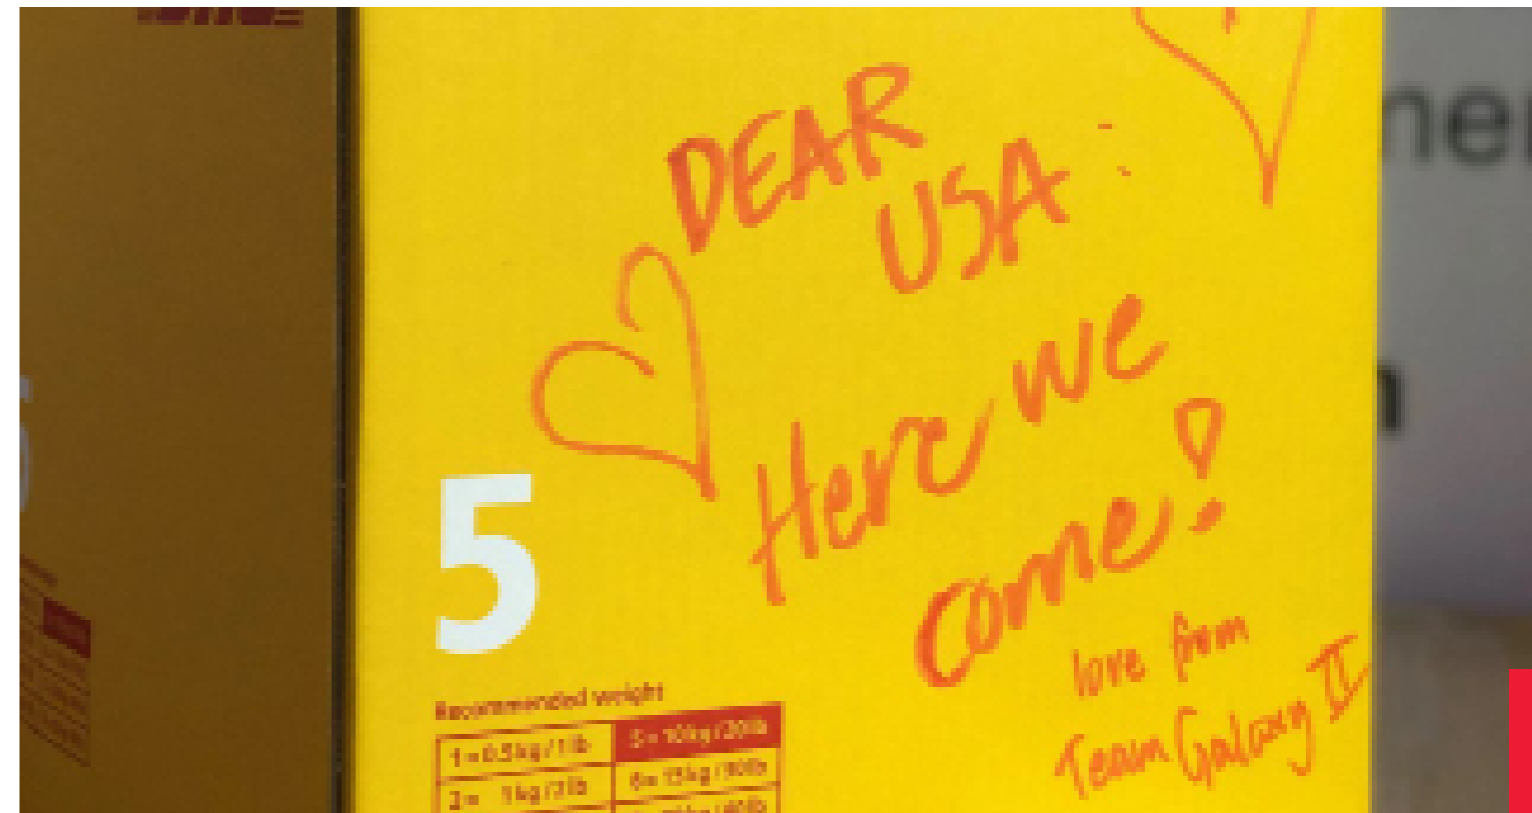 DEAR
USA:
Here we
come!
love from
Team Galaxy II
5
Recommended weight
1=0.5kg/1lb 5=10kg/20lb
2= 1kg/2lb 6=15kg/30lb